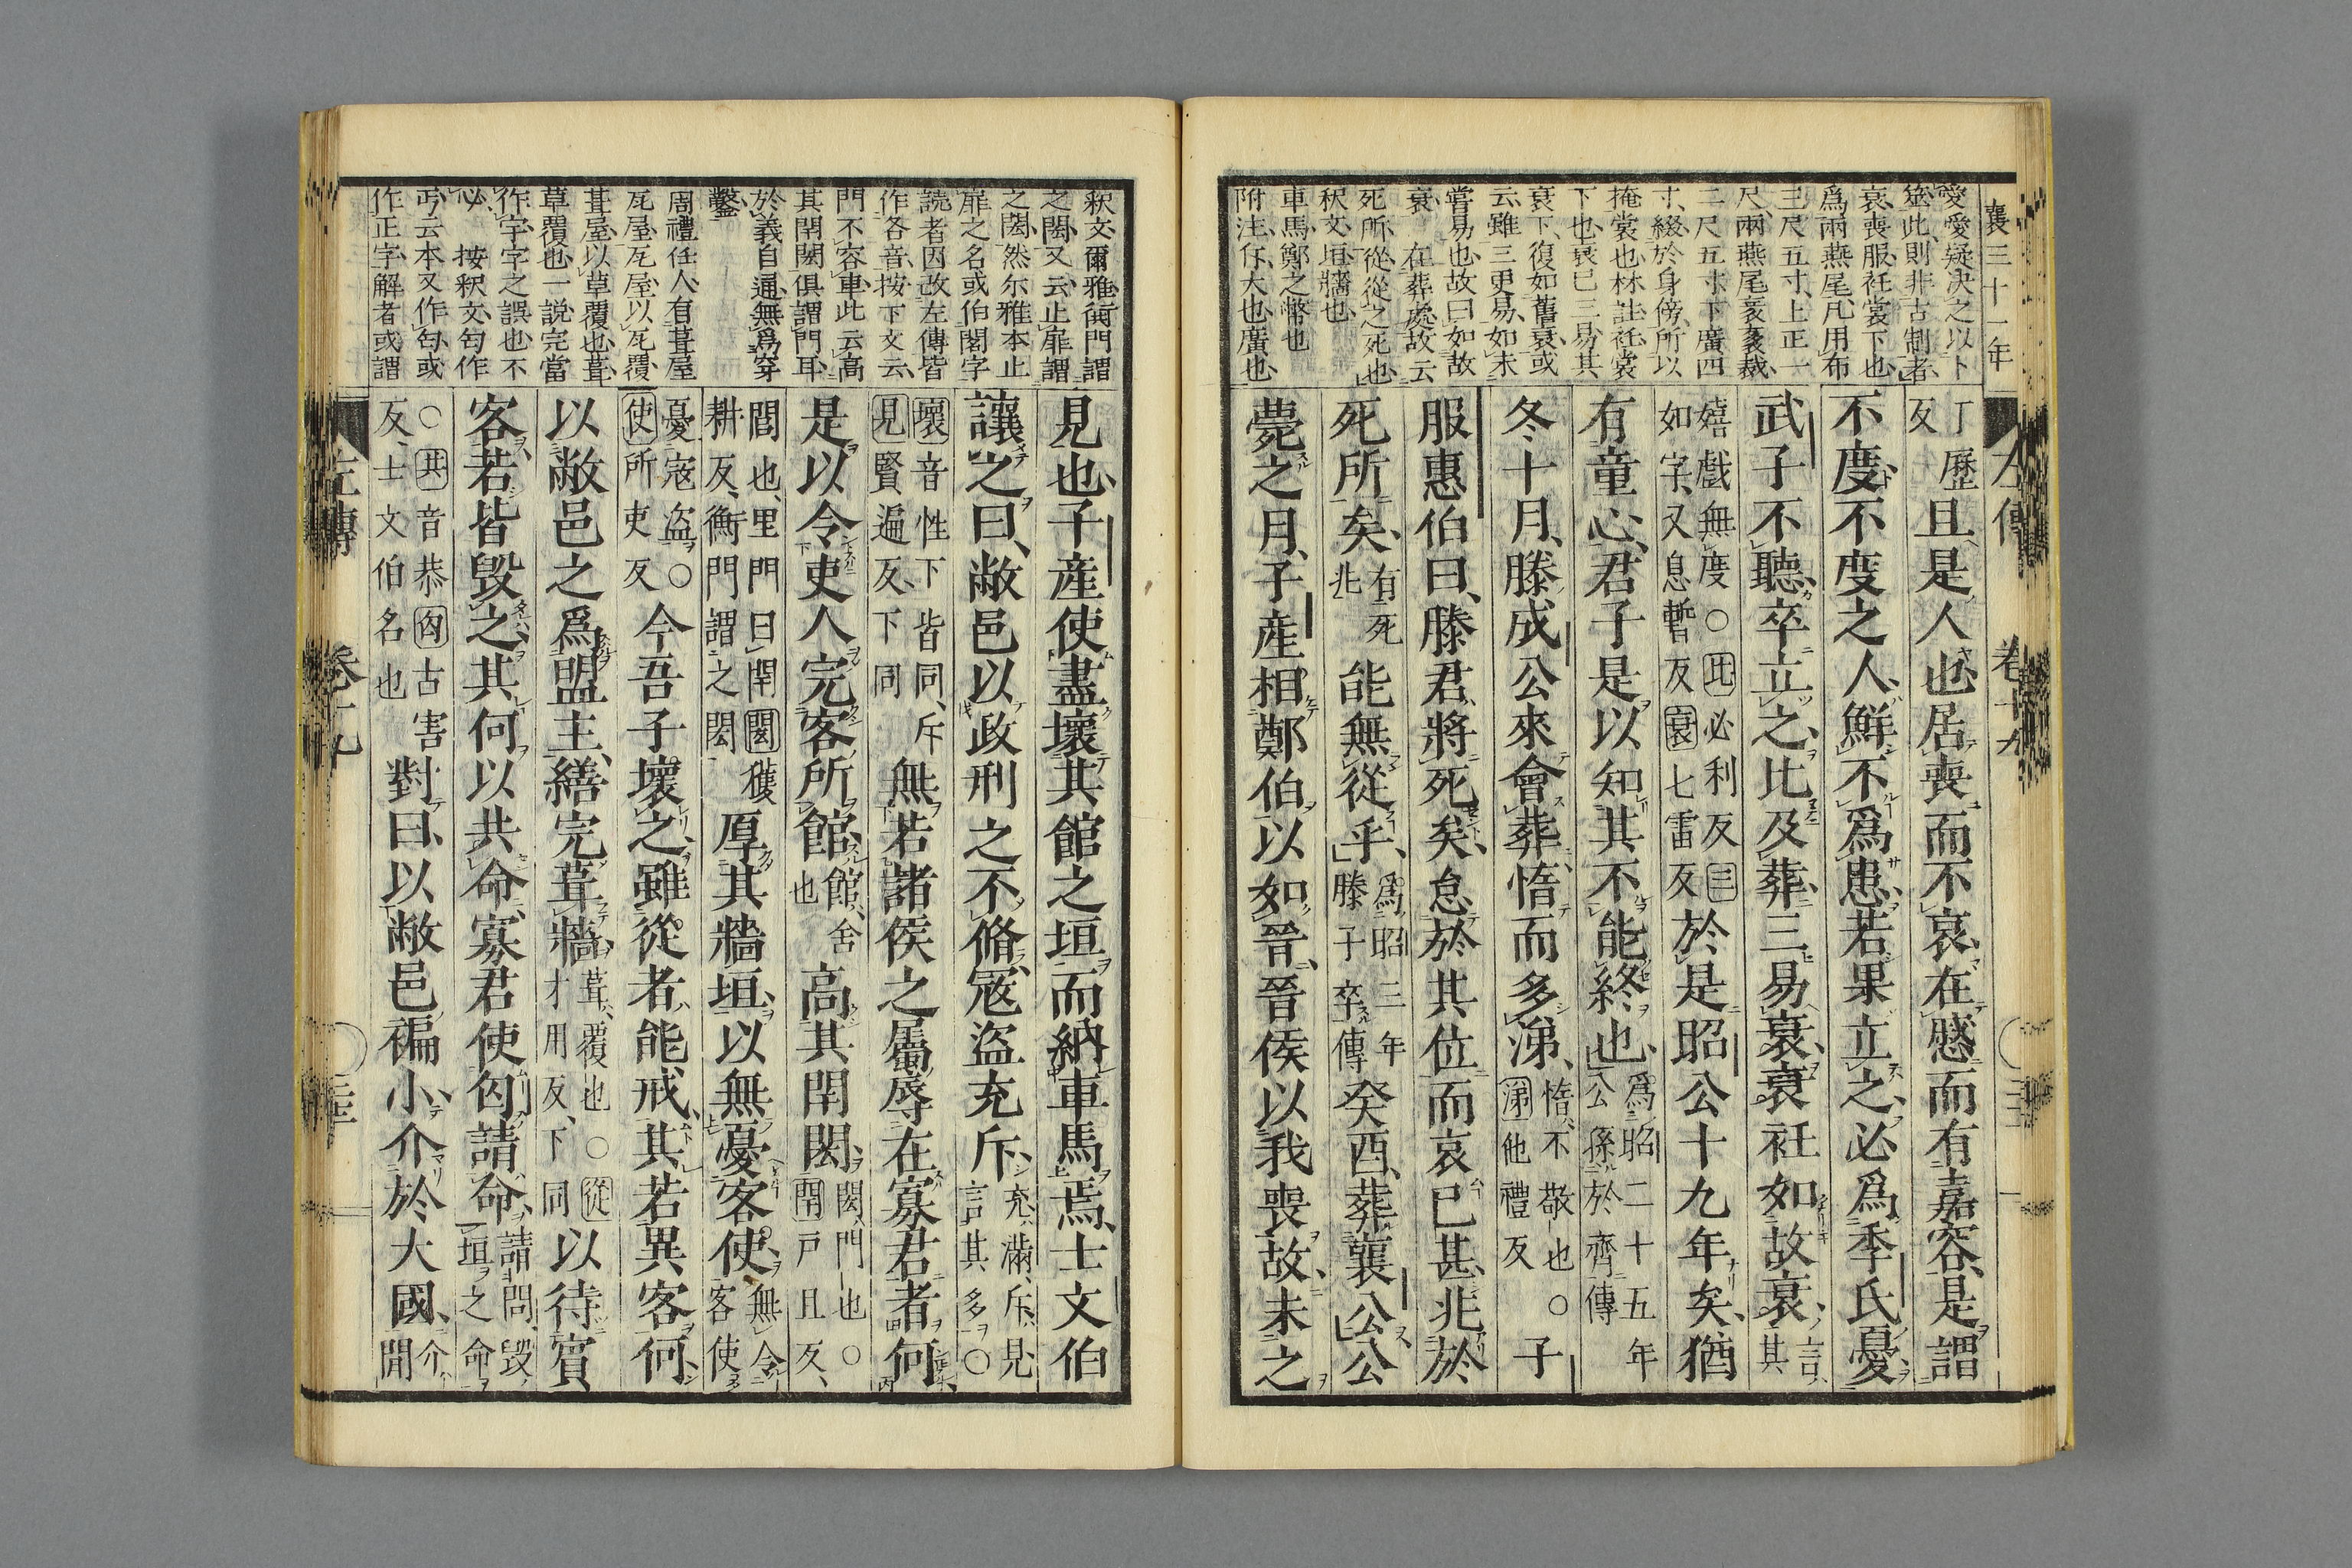 襄三十一年
愛愛疑决之以卜
筮此則非古制者
衰喪服衽裳下也
爲兩燕尾凡用布
三尺五寸上正一
尺兩燕尾袤袤裁
二尺五寸下廣四
寸綴於身傍所以
掩裳也林註衽裳
下也衰已三易其
衰下復如舊衰或
云雖三更易如未
嘗易也故曰如故
衰 在葬處故云
死所從從之死也
釈文垣牆也
車馬鄭之幣也
附注仔大也廣也
左傳 卷十九
丁歷
反
且是人也居喪而不哀在慼而有嘉容是謂
不度不度之人鮮不爲患若果立之必爲季氏憂
武子不聽卒立之比及葬三易衰衰衽如故衰
言其
嬉戲無度○比必利反三
如字又息暫反衰七雷反
於是昭公十九年矣猶
有童心君子是以知其不能終也
爲昭二十五年
公孫於齊傳
冬十月滕成公來會葬惰而多涕
惰不敬也○
涕他禮反
子
服惠伯曰滕君將死矣怠於其位而哀已甚兆於
死所矣
有死
兆
能無從乎
爲昭三年
滕子卒傳
癸酉葬襄公公
薨之月子產相鄭伯以如晉晉侯以我喪故未之
釈文爾雅衖門謂
之閎又云止扉謂
之閎然尓雅本止
扉之名或伯閣字
読者因改左傳皆
作各音按下文云
門不容車此云高
其閈閎俱謂門耳
於義自通無爲穿
鑿
周禮任人有葺屋
瓦屋瓦屋以瓦覆
葺屋以草覆也葺
草覆也一説完當
作宇字之誤也不
必 按釈文匄作
丐云本又作匄或
作正字解者或謂
見也子產使盡壞其館之垣而納車馬焉士文伯
讓之曰敝邑以政刑之不脩寇盜充斥
充滿斥見
言其多○
壞音性下皆同斥
見賢遍反下同
無若諸侯之屬辱在寡君者何
是以令吏人完客所館
館舍
也
高其閈閎
閎門也○
閈戸旦反
閻也里門曰閈閎獲
耕反衡門謂之閎
厚其牆垣以無憂客使
無令
客使
憂寇盜○
使所吏反
今吾子壞之雖從者能戒其若異客何
以敝邑之爲盟主繕完葺牆
葺覆也○從
才用反下同
以待賓
客若皆毀之其何以共命寡君使匄請命
請問毀
垣之命
○共音恭匄古害
反士文伯名也
對曰以敝邑褊小介於大國
介
間
左傳 卷十九